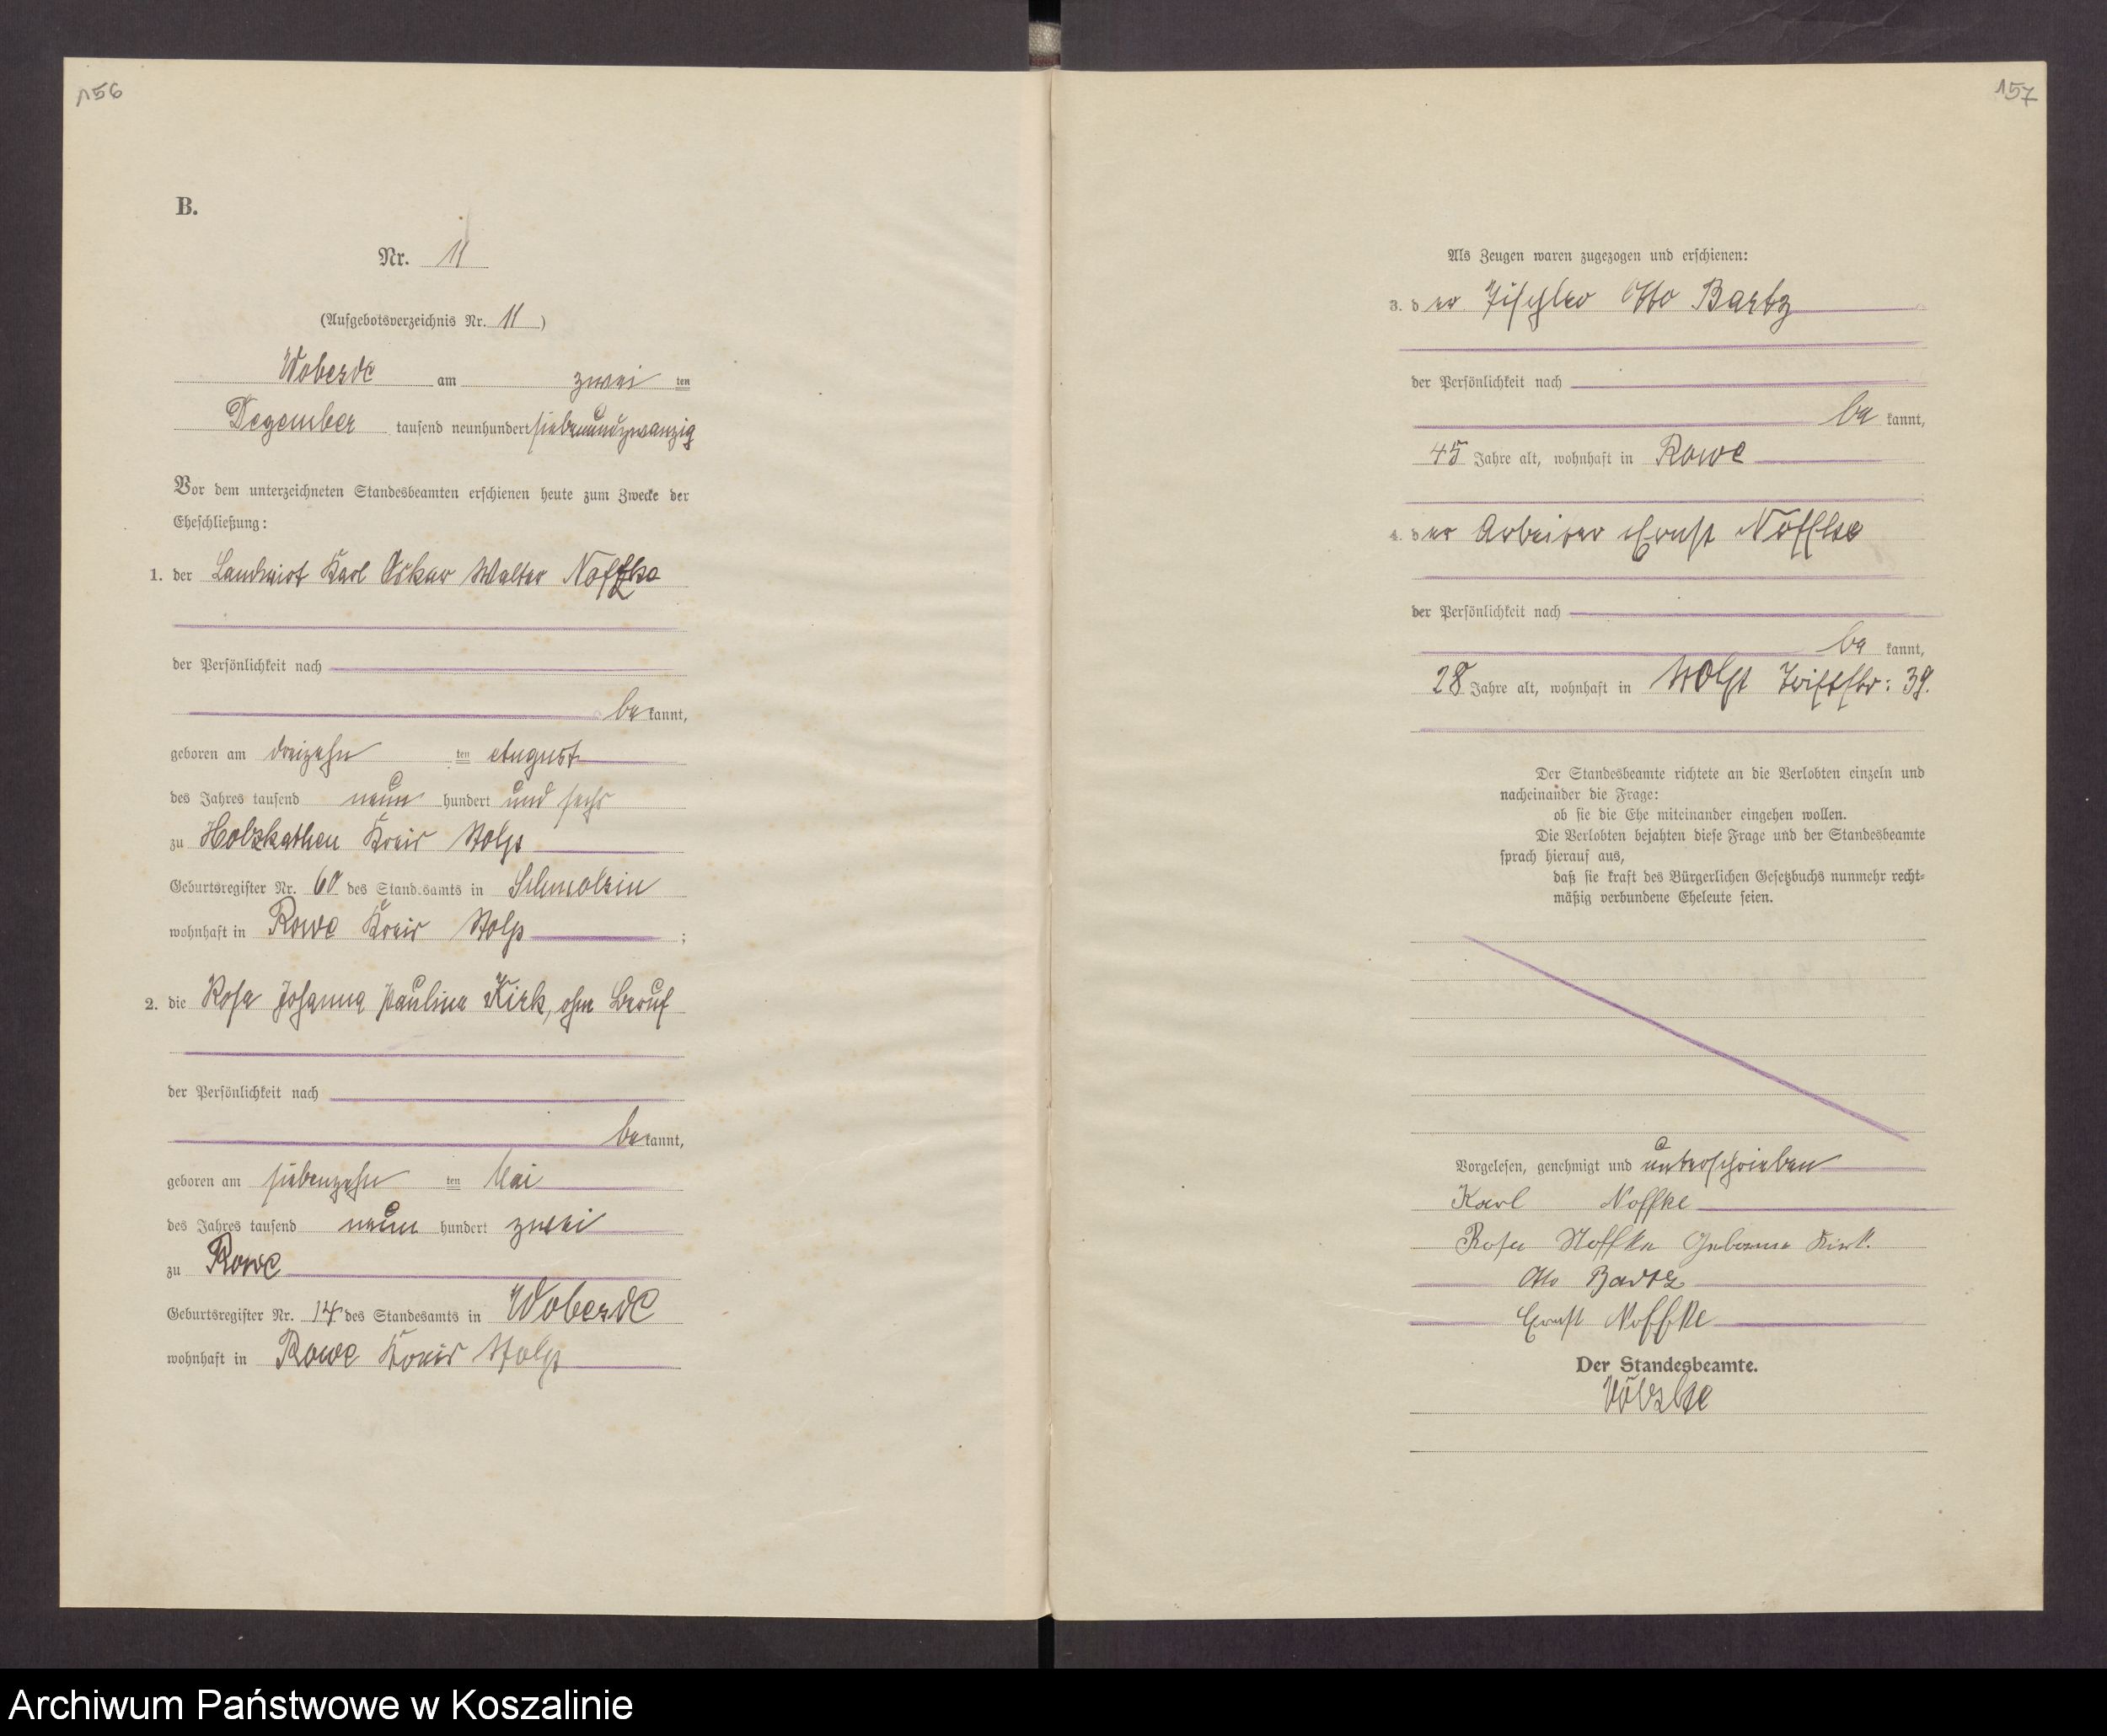 156
B.
Nr. 11
(Aufgebotsverzeichnis Nr. 11)
Wobesde am zwei ten
Dezember tausend neunhundert siebenundzwanzig
Vor dem unterzeichneten Standesbeamten erschienen heute zum Zwecke der
Eheschließung:
1. der Landwirt Karl Oskar Walter Noffke
der Persönlichkeit nach
bekannt,
geboren am dreizehn ten August
des Jahres tausend neun hundert und sechs
zu Holzkathen Kreis Stolp
Geburtsregister Nr. 60 des Standesamts in Schmolsin
wohnhaft in Rowe Kreis Stolp ;
2. die Rosa Johanna Pauline Kirk, ohne Beruf
der Persönlichkeit nach
bekannt,
geboren am siebenzehn ten Mai
des Jahres tausend neun hundert zwei
zu Rowe
Geburtsregister Nr. 14 des Standesamts in Wobesde
wohnhaft in Rowe Kreis Stolp
157
Als Zeugen waren zugezogen und erschienen:
3. der Tischler Otto Bartz
der Persönlichkeit nach
bekannt,
45 Jahre alt, wohnhaft in Rowe
4. der Arbeiter Ernst Noffke
der Persönlichkeit nach
bekannt,
28 Jahre alt, wohnhaft in Stolp Triftstr: 39.
Der Standesbeamte richtete an die Verlobten einzeln und
nacheinander die Frage:
ob sie die Ehe miteinander eingehen wollen.
Die Verlobten bejahten diese Frage und der Standesbeamte
sprach hierauf aus,
daß sie kraft des Bürgerlichen Gesetzbuchs nunmehr recht-
mäßig verbundene Eheleute seien.
Vorgelesen, genehmigt und unterschrieben
Karl Noffke
Rosa Noffke Geborene Kirk.
Otto Bartz
Ernst Noffke
Der Standesbeamte.
Völzke
Archiwum Państwowe w Koszalinie